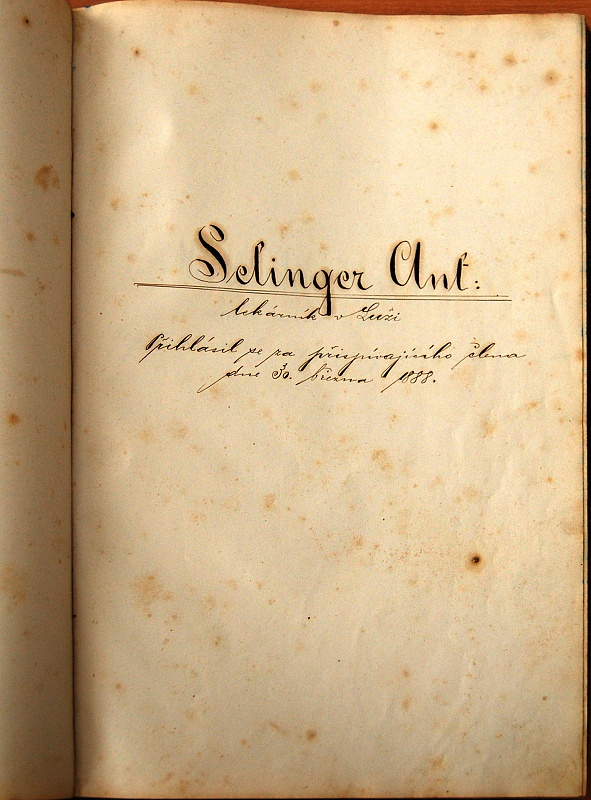 Selinger Ant:
lekárník v Luži
Přihlásil se za přispívajícího člena
dne 30. března 1888.